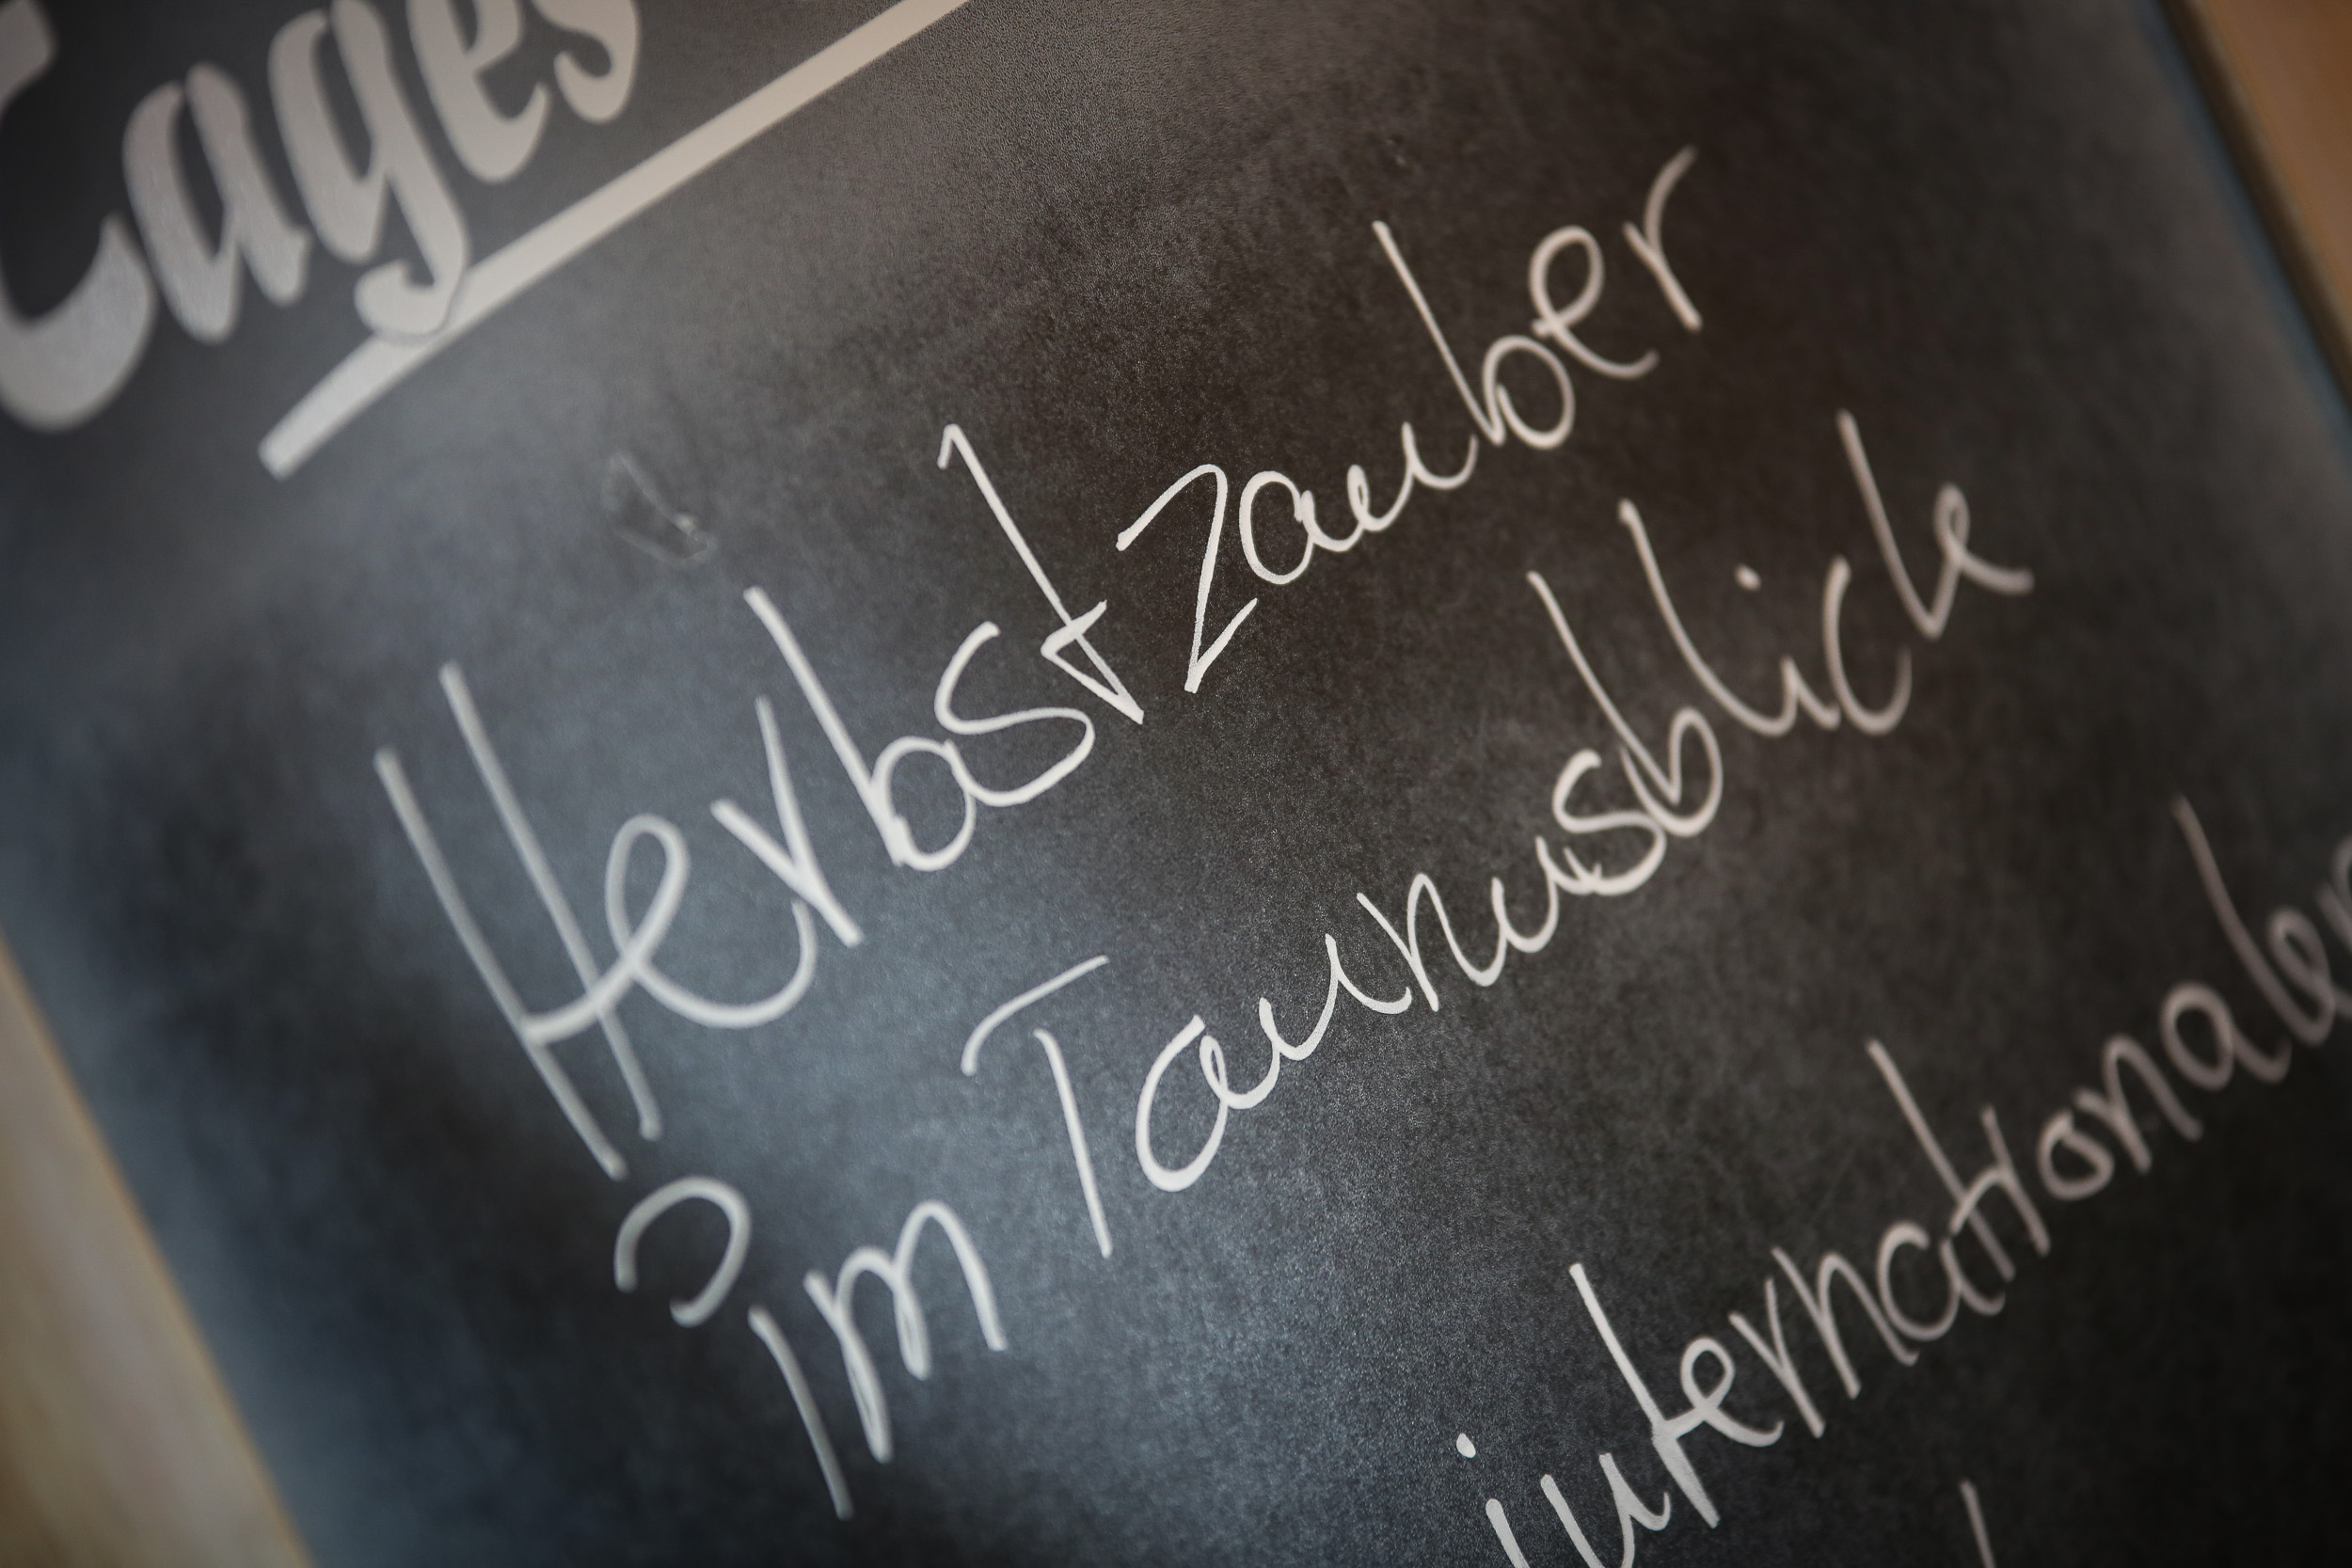 Tages
Herbstzauber
im Taunusblick
internationaler